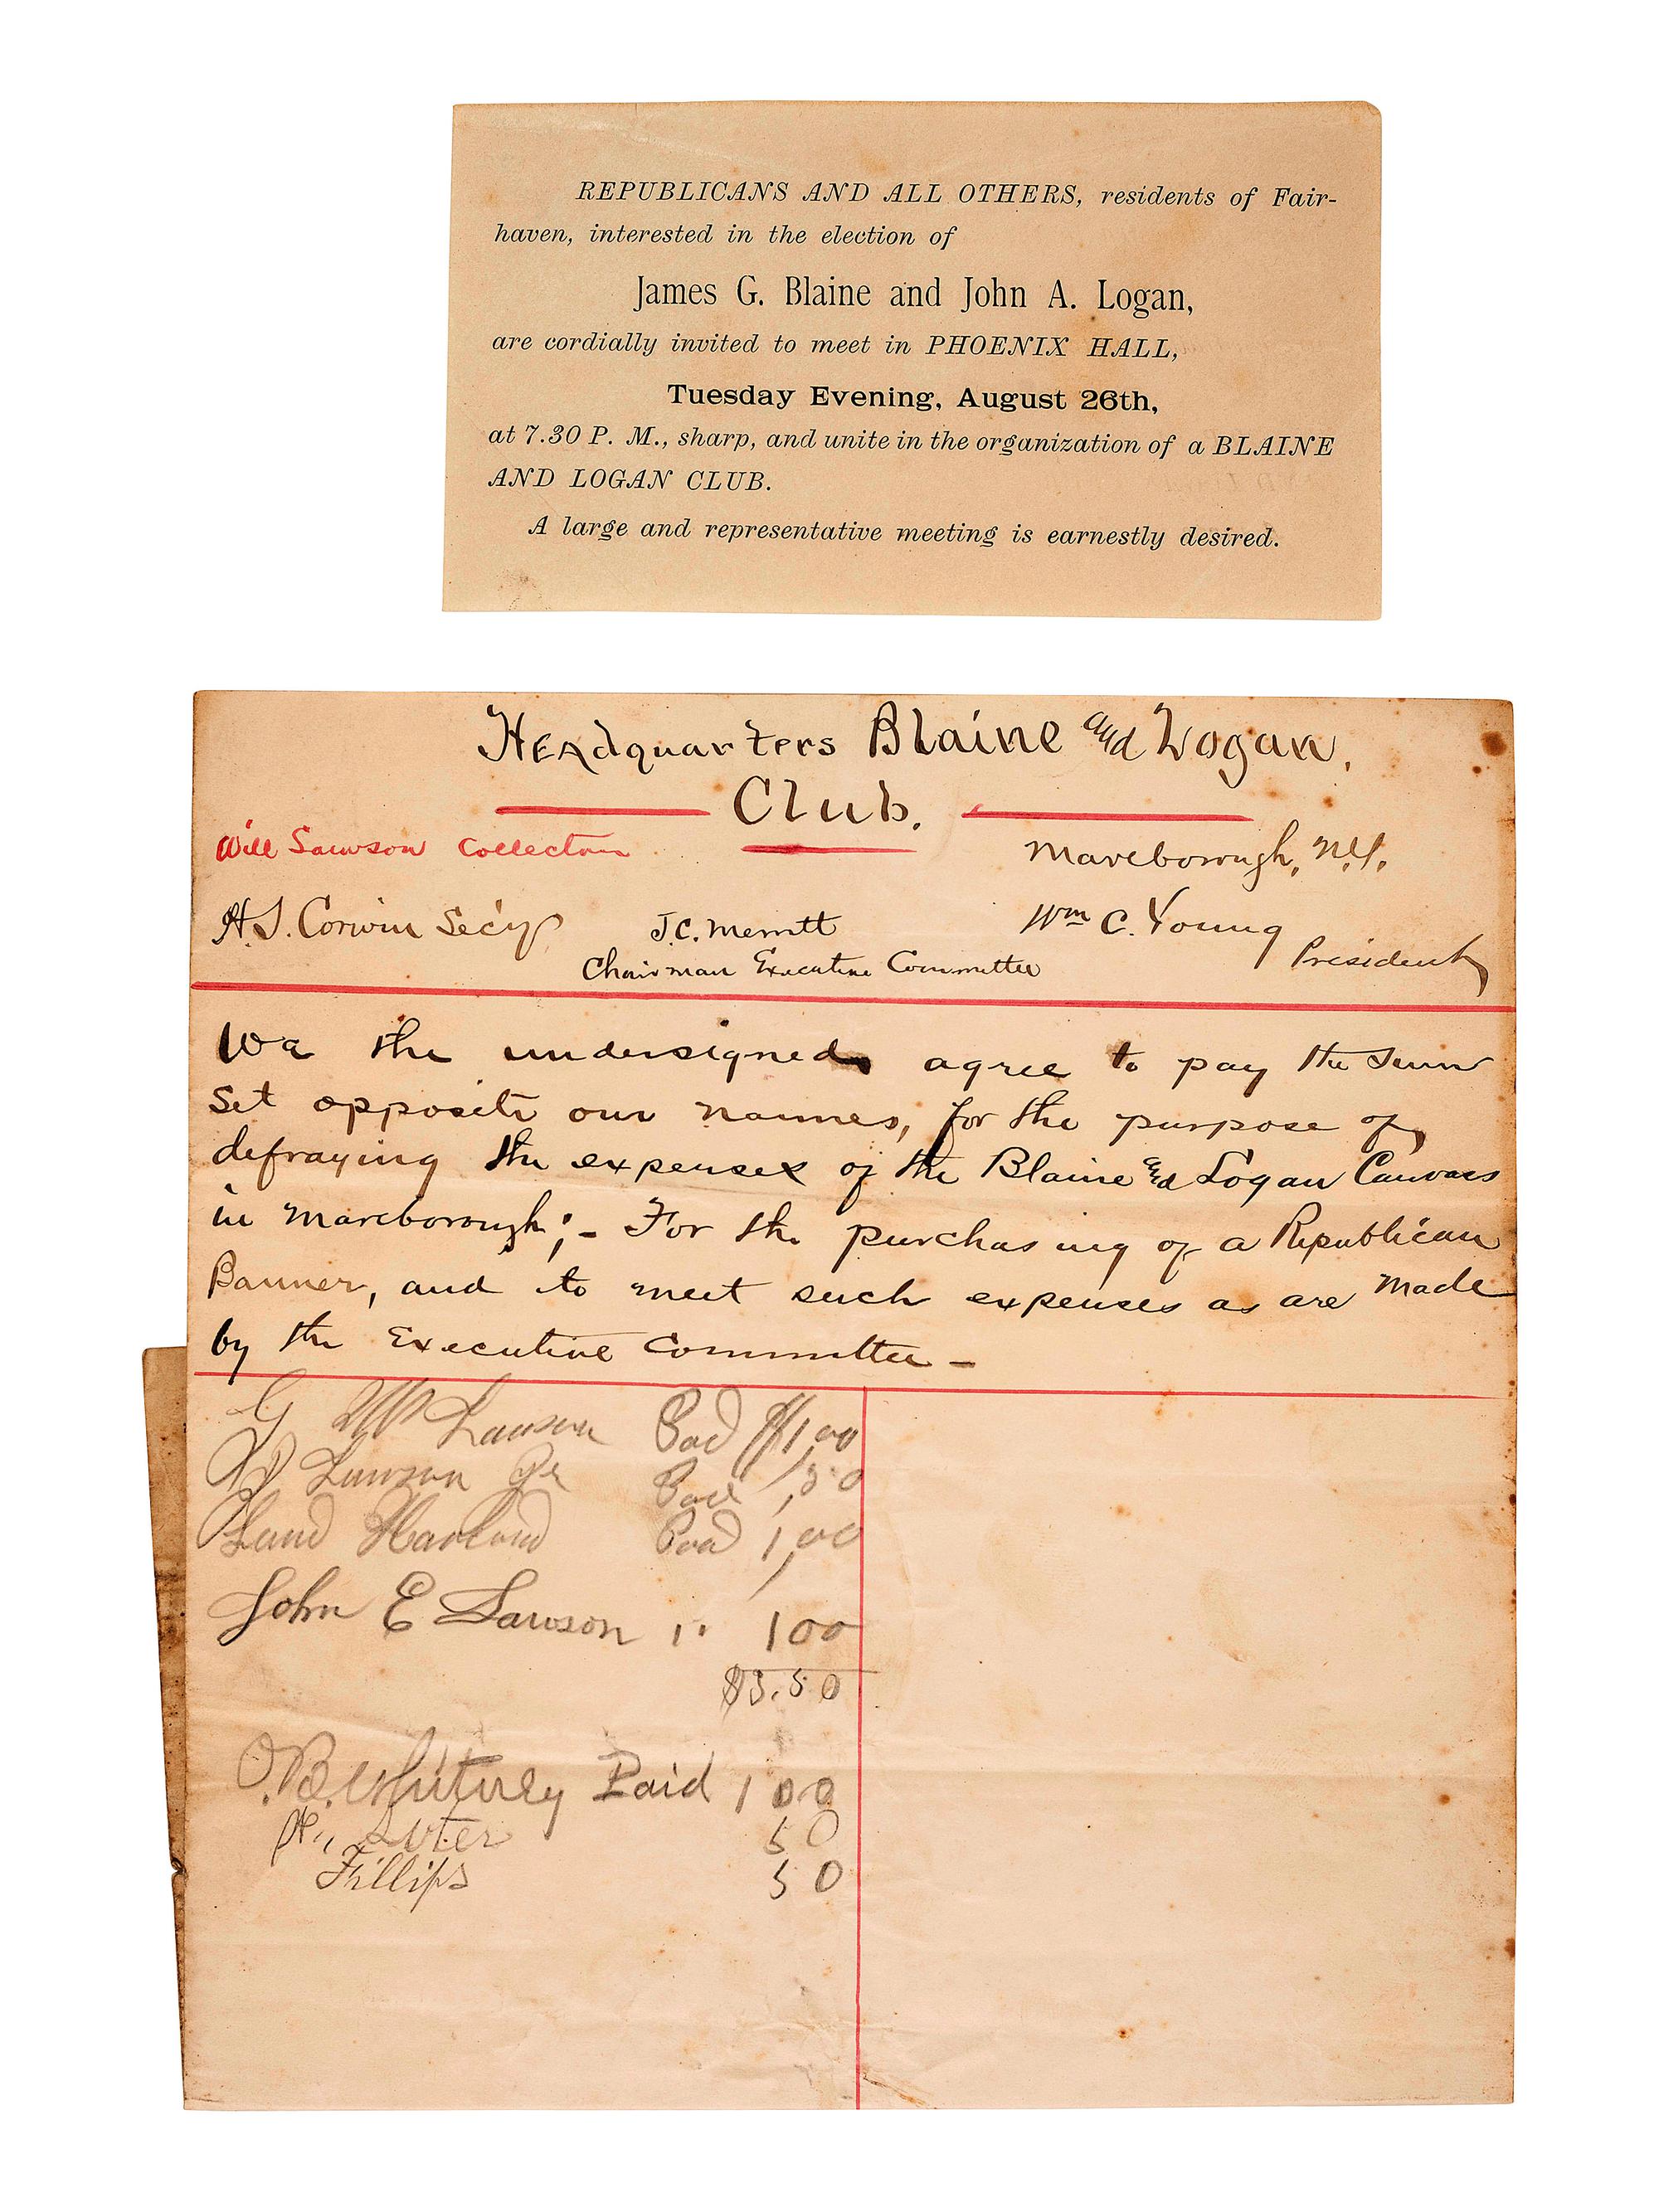 REPUBLICANS AND ALL OTHERS, residents of Fair-
haven, interested in the election of
James G. Blaine and John A. Logan,
are cordially invited to meet in PHOENIX HALL,
Tuesday Evening, August 26th,
at 7.30 P. M., sharp, and unite in the organization of a BLAINE
AND LOGAN CLUB.
A large and representative meeting is earnestly desired.
Headquarters Blaine and Logan.
Club.
Will Lawson Collector
Marlborough, N.Y.
H.S. Corwin Sec'y
J.C. Merritt
Chairman Executive Committee
Wm C. Young
President
We the undersigned agree to pay the sum
Set opposite our names, for the purpose of
defraying the expenses of the Blaine and Logan Canvass
in Marlborough; - For the purchasing of a Republican
Banner, and to meet such expenses as are made
by the Executive Committee -
G W Lawson Pad $1,00
Lawson Jr Pad ,50
Harland Pad 1,00
John E Lawson " 100
$3.50
O.B. Whitney Paid 100
50
Fillips 50